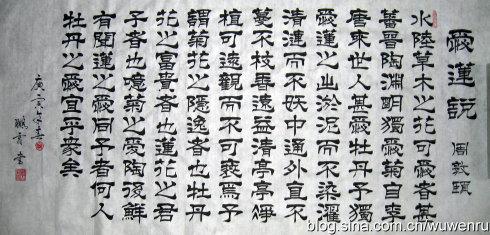 愛蓮說
周敦頤
水陸草木之花可愛者甚
蕃晉陶淵明獨愛菊自李
唐來世人甚愛牡丹予獨
愛蓮之出淤泥而不染濯
清漣而不妖中通外直不
蔓不枝香遠益清亭亭淨
植可遠觀而不可褻焉予
謂菊花之隱逸者也牡丹
花之富貴者也蓮花之君
子者也噫菊之愛陶後鮮
有聞蓮之愛同予者何人
牡丹之愛宜乎眾矣
庚寅年春
書
blog.sina.com.cn/wuwenru